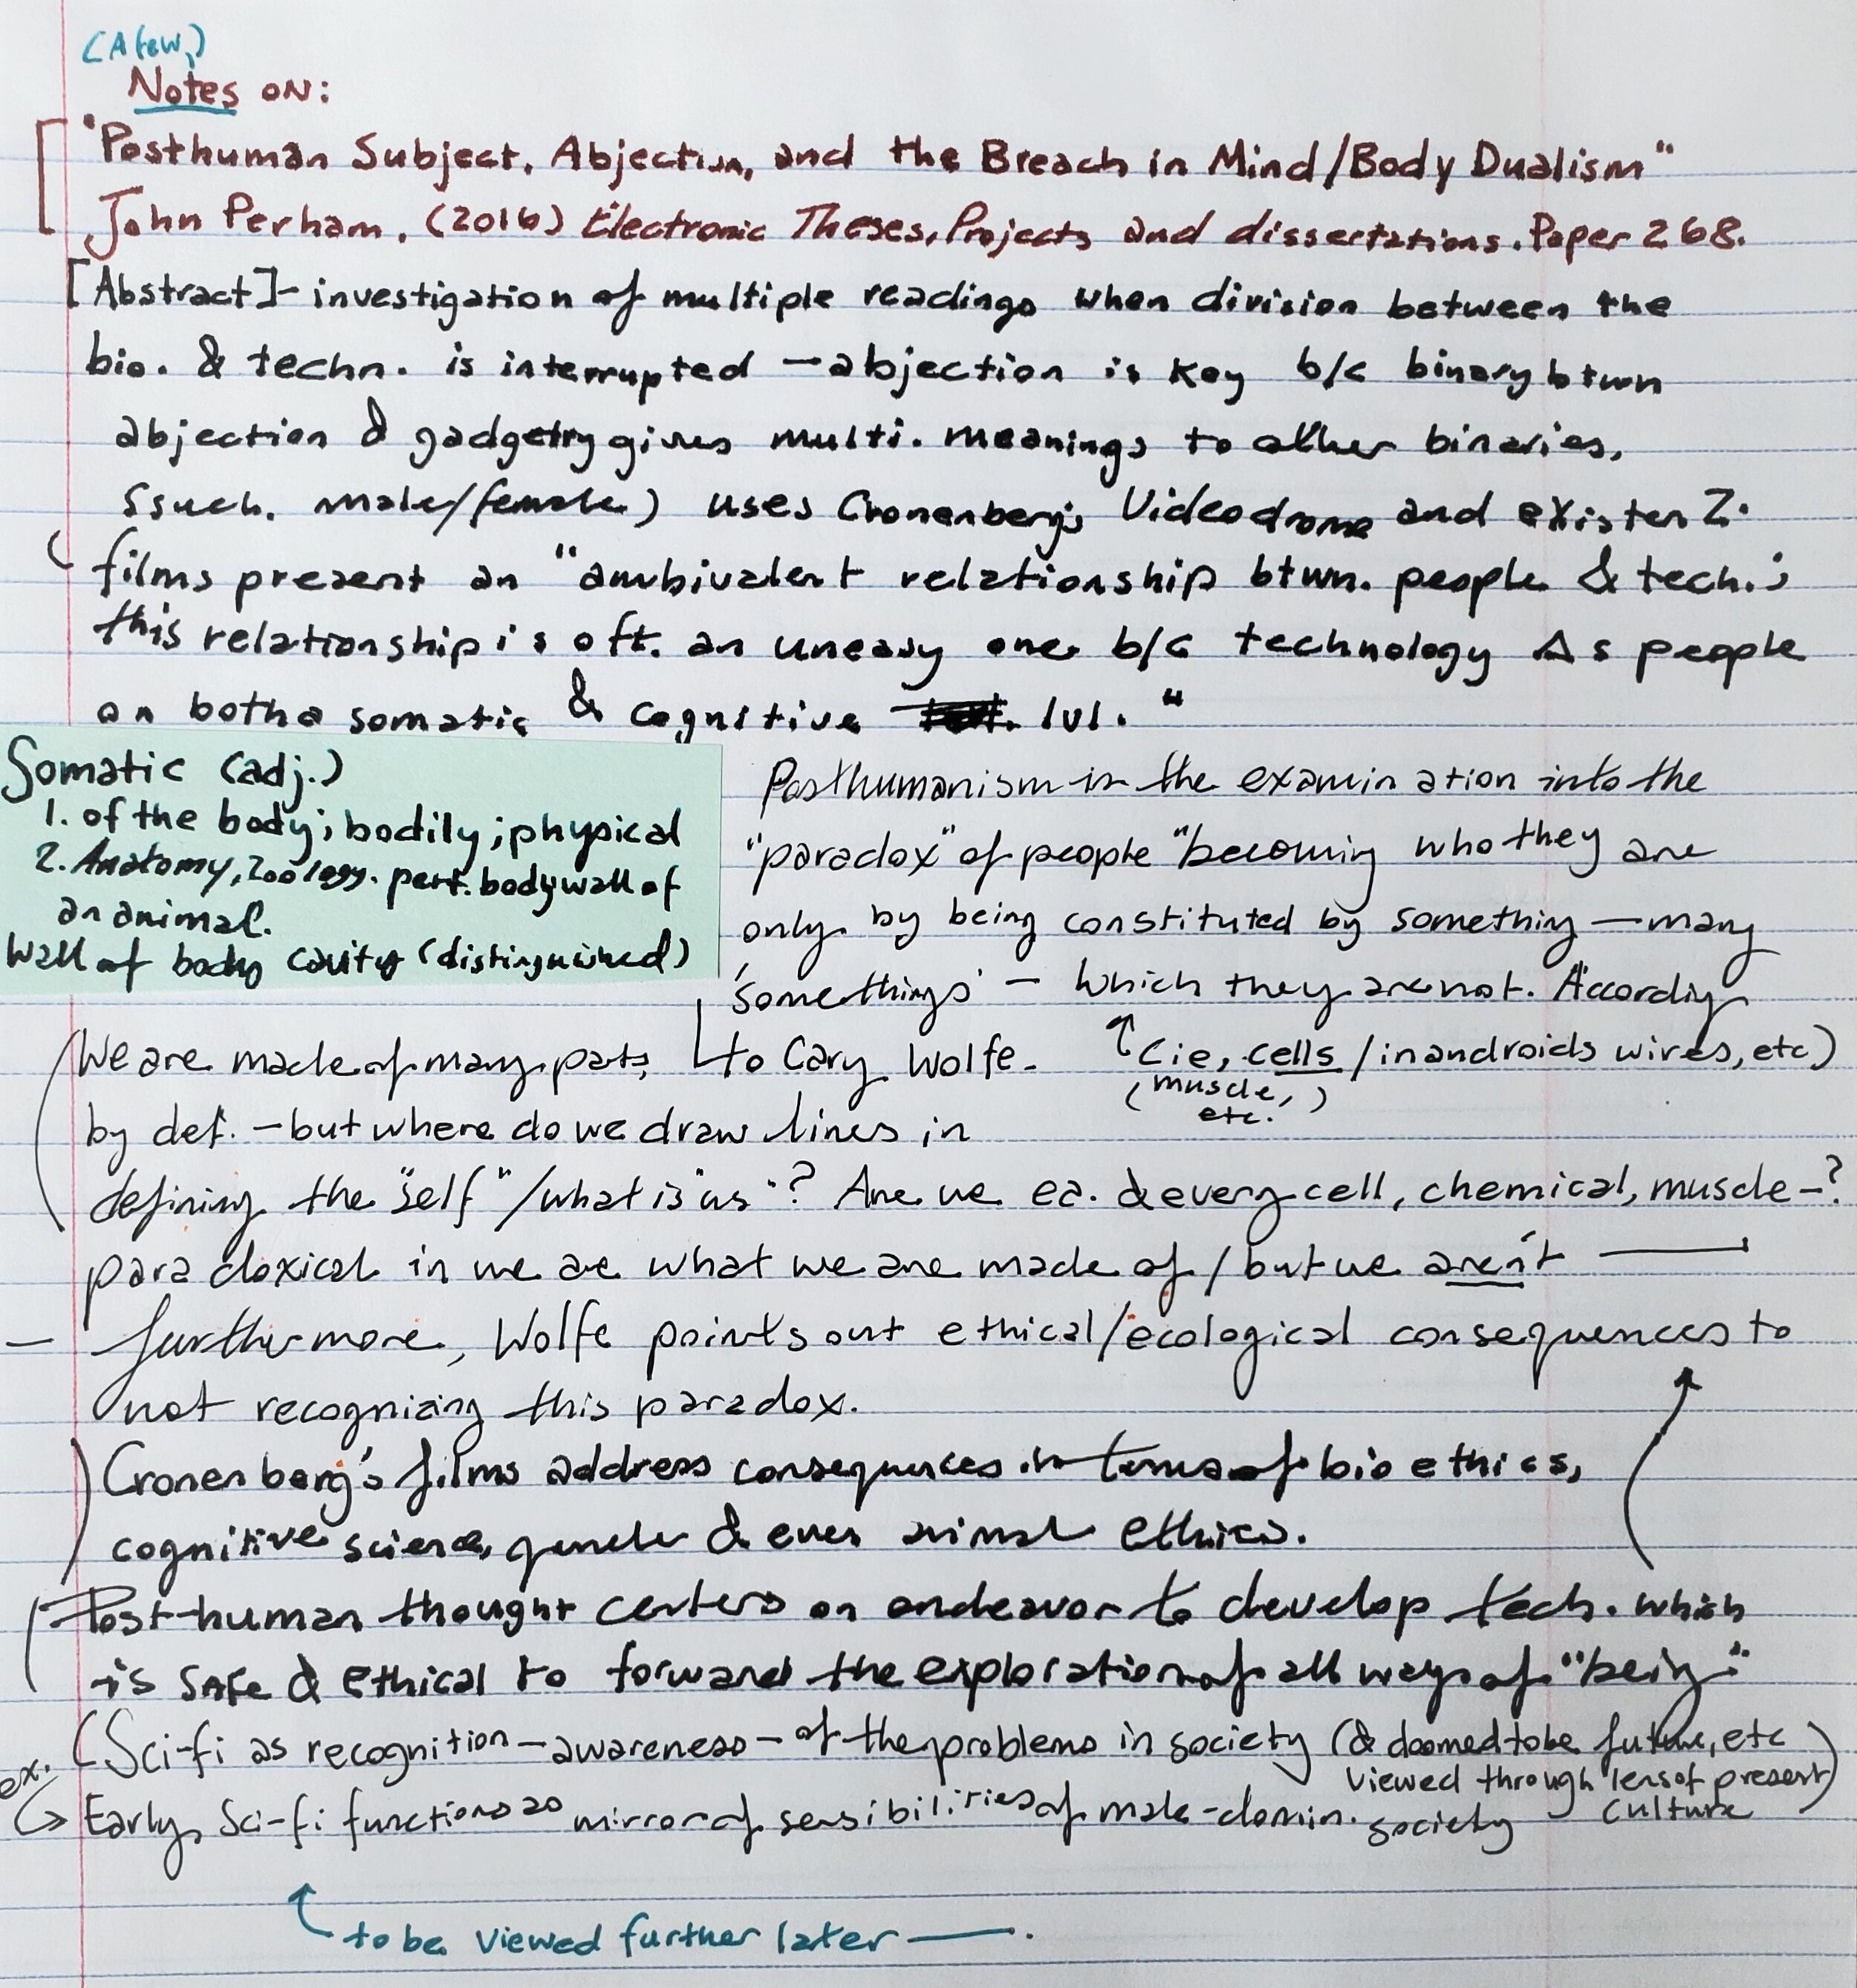 (A few)
Notes on:
"Posthuman Subject, Abjection, and the Breach in Mind/Body Dualism"
John Perham. (2016) Electronic Theses, Projects and dissertations. Paper 268.
[Abstract]- investigation of multiple readings when division between the
bio. & techn. is interrupted — abjection is key b/c binary btwn
abjection & gadgetry gives multi. meanings to other binaries,
(such. male/female) uses Cronenberg's Videodrome and eXistenZ.
films present an "ambivalent relationship btwn. people & tech.;
this relationship is oft. an uneasy one b/c technology Δs people
on both a somatic & cognitive lvl."
Somatic (adj.)
1. of the body; bodily; physical
2. Anatomy, Zoology. pert. body wall of
an animal.
Wall of body cavity (distinguished)
Posthumanism is the examination into the
"paradox" of people "becoming who they are
only by being constituted by something — many
'somethings' — which they are not. According
to Cary Wolfe.
↑(ie, cells / in androids wires, etc)
(muscle,)
etc.
We are made of many parts,
by def. — but where do we draw lines in
defining the "self" / what is "us"? Are we ea. & every cell, chemical, muscle —?
paradoxical in we are what we are made of / but we aren't —
— furthermore, Wolfe points out ethical/ecological consequences to
not recognizing this paradox.
Cronenberg's films address consequences in terms of bioethics,
cognitive science, gender & even animal ethics.
Post-human thought centers on endeavor to develop tech. which
is safe & ethical to forward the exploration of all ways of "being"
(Sci-fi as recognition — awareness — of the problems in society (& doomed to be future, etc
viewed through lens of present)
culture
ex.
→ Early Sci-fi functions as mirror of sensibilities of male-domin. society
↑ to be viewed further later —.